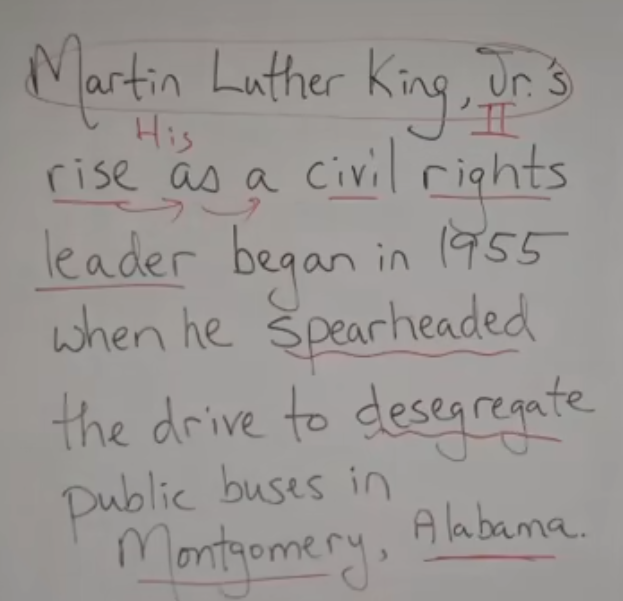 Martin Luther King, Jr.'s
II
His
rise as a civil rights
leader began in 1955
when he spearheaded
the drive to desegregate
public buses in
Montgomery, Alabama.